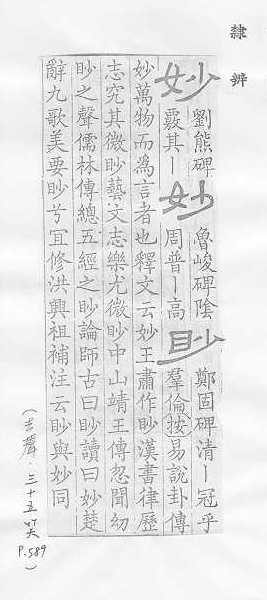 隸辨
妙 劉熊碑 覈其丨 妙 魯峻碑陰 周普丨高 眇 鄭固碑清丨冠乎
羣倫按易說卦傳
妙萬物而為言者也釋文云妙王肅作眇漢書律歷
志究其微眇藝文志樂尤微眇中山靖王傳忽聞幼
眇之聲儒林傳總五經之眇論師古曰眇讀曰妙楚
辭九歌美要眇兮宜修洪興祖補注云眇與妙同
(去聲·三十五笑
P.589)